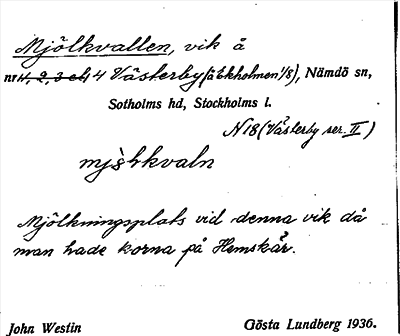 Mjölkvallen, vik å
nr 1, 2, 3 el. 4 Västerby (å Ekholmen 1/8), Nämdö sn,
Sotholms hd, Stockholms l.
N 18 (Västerby ser. II)
Mjölkningsplats vid denna vik då
man hade korna på Hemskär.
John Westin Gösta Lundberg 1936.